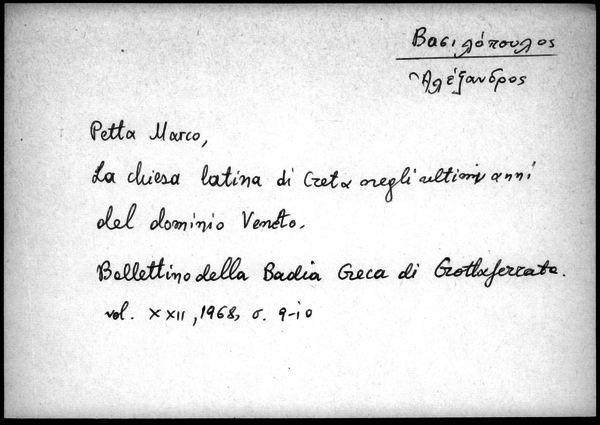 Βασιλόπουλος
Ἀλέξανδρος
Petta Marco,
La chiesa latina di Creta negli ultimi anni
del dominio Veneto.
Bollettino della Badia Greca di Grottaferrata.
vol. XXII, 1968, σ. 9-10